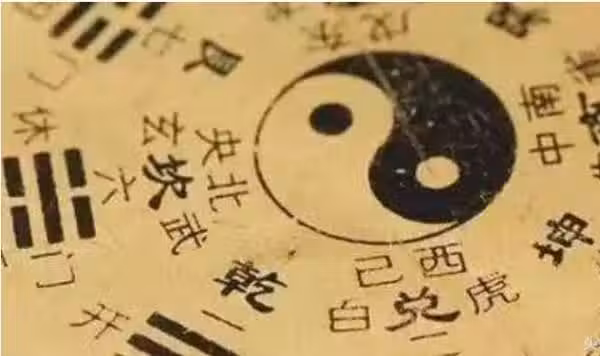 七艮
门休
央北
玄坎武
六
中
坤
己西
白兑虎
乾
一
开门